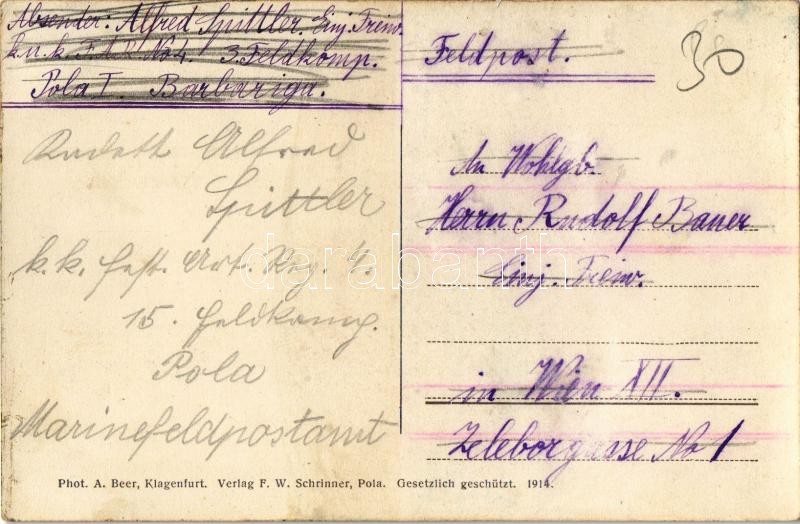 Absender: Alfred Spittler. Einj. Freiw.
k. u. k. F. A. R. No 4. 3. Feldkomp.
Pola I. Barbariga.
Feldpost.
30
Kadett Alfred
Spittler
k. k. Fest. Art. Reg. 4.
15. Feldkomp.
Pola
Marinefeldpostamt
An Wohlgb.
Herrn Rudolf Bauer
Einj. Freiw.
in Wien XII.
Zeleborgasse No 1
darabanth
Phot. A. Beer, Klagenfurt. Verlag F. W. Schrinner, Pola. Gesetzlich geschützt. 1914.